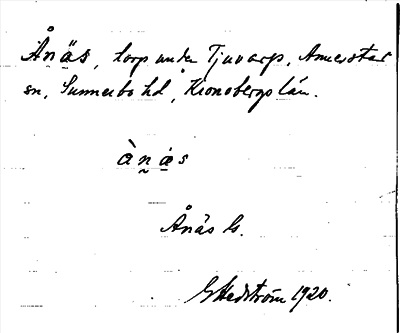 Ånäs, torp under Tjuvarp, Annerstad
sn, Sunnerbo hd, Kronobergs län.
ànä̀s
Ånäs G.
G Hedström 1920.